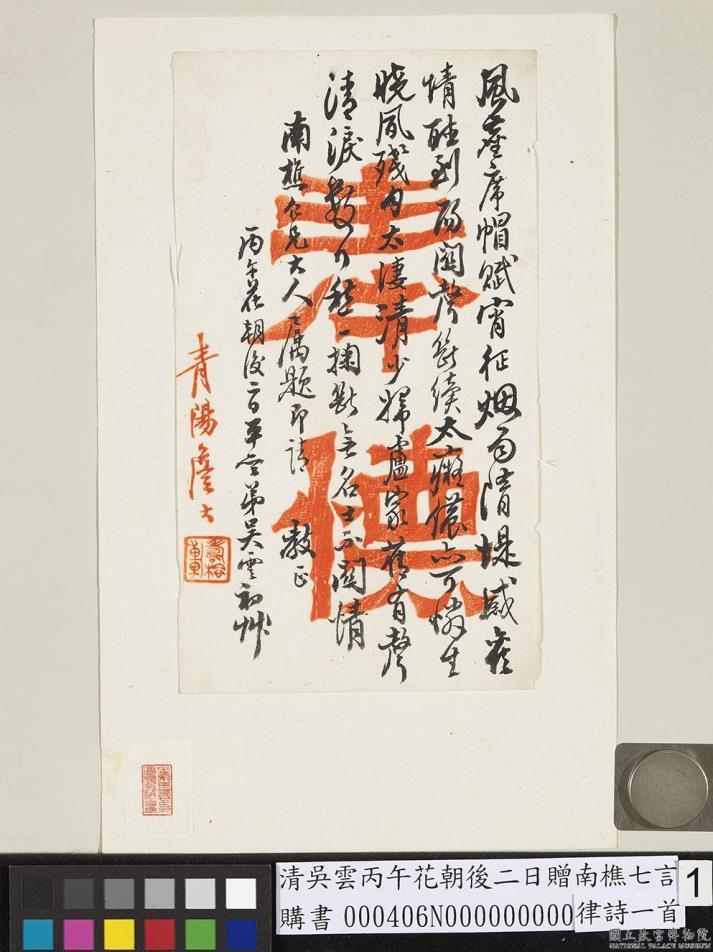 風塵席帽賦宵征烟雨隋堤感舊
情到陽關聲斷續太癡儂亦可憐生
曉風殘月太淒清少婦盧家舊有聲
清淚數行愁一掬斷無名士不關情
南樵兄大人屬題即請 教正
丙午花朝後二日平弟吳雲初艸
青陽詹大
清吳雲丙午花朝後二日贈南樵七言
購書 000406N000000000 律詩一首
1
國立故宮博物院
NATIONAL PALACE MUSEUM